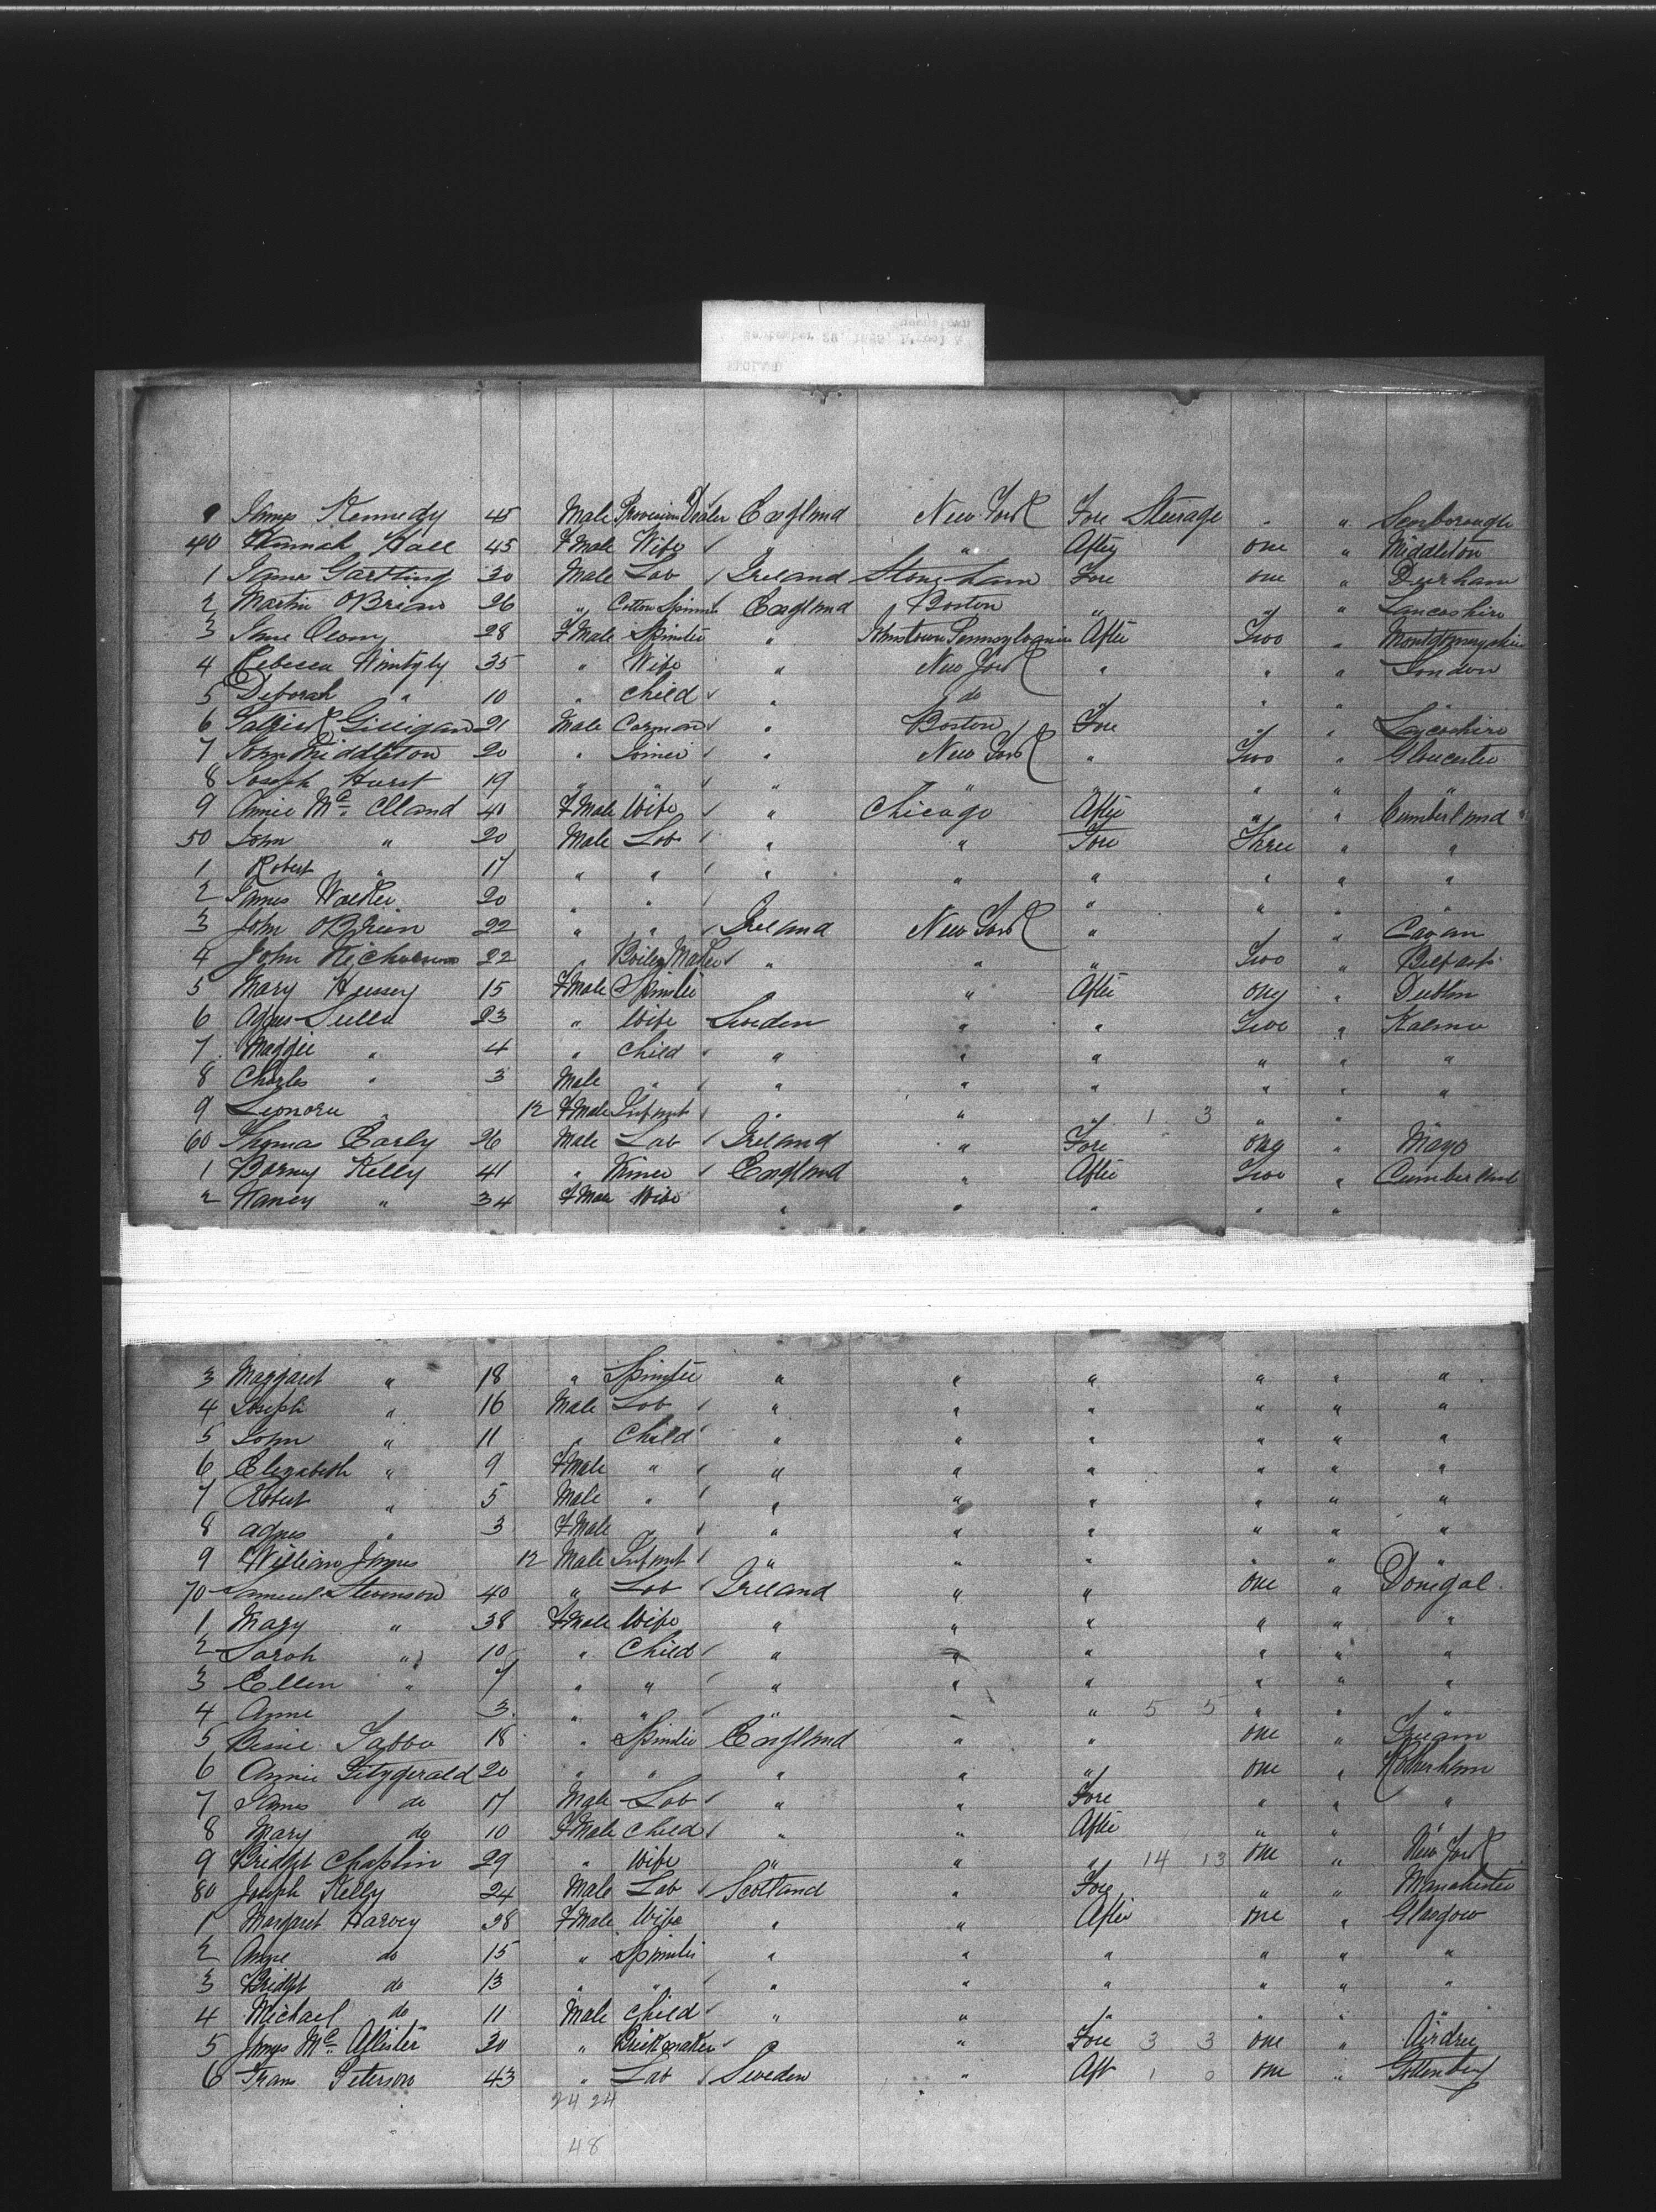 9 James Kennedy 45 Male Provision Dealer England New York Fore Steerage " " Scarborough
40 Hannah Hall 45 F Male Wife " " After one " Middleton
1 James 30 Male Lab Ireland Stoneham Fore one " Durham
2 Martin OBrian 26 " Cotton Spinner England Boston " " " Lancashire
3 Jane 28 F Male Spinster " Johnstown Pennsylvania After Two " Montgomeryshire
4 Rebecca 35 " Wife " New York " " " London
5 Deborah " 10 " Child " do " " " "
6 Patrick Gilligan 21 Male Carman " Boston Fore " " Lancashire
7 John Middleton 20 " Joiner " New York " Two " Gloucester
8 Joseph Hurst 19 " " " " " " " "
9 Annie Mc Clland 40 F Male Wife " Chicago After " " Cumberland
50 John " 20 Male Lab " " Fore Three " "
1 Robert " 17 " " " " " " " "
2 James Walker 20 " " " " " " " "
3 John OBrien 22 " " Ireland New York " " " Cavan
4 John 22 " Boiler Maker " " " Two " Belfast
5 Mary Hussey 15 F Male Spinster " After one " Dublin
6 Agnes 23 " Wife Sweden " " Two " Kalmar
7 Maggie " 4 " Child " " " " " "
8 Charles " 3 Male " " " " " " "
9 Leonora " 12 F Male Infant " " " 1 3 " "
60 Thomas Early 26 Male Lab Ireland " Fore one " Mayo
1 Barney Kelly 41 " Miner England " After Two " Cumberland
2 Nancy " 34 F Male Wife " " " " "
3 Maggaret " 18 " Spinster " " " " " "
4 Joseph " 16 Male Lab " " " " " "
5 John " 11 " Child " " " " " "
6 Elizabeth " 9 F Male " " " " " " "
7 Robert " 5 Male " " " " " " "
8 Agnes " 3 F Male " " " " " "
9 William James 12 Male Infant " " " " " "
70 Samuel Stevenson 40 " Lab Ireland " " one " Donegal
1 Mary " 38 F Male Wife " " " " " "
2 Sarah " 10 " Child " " " " " "
3 Ellen " 7 " " " " " " " "
4 Anne " 3 " " " " " 5 5 " " "
5 Bessie 18 " Spinster England " " one "
6 Annie Fitzgerald 20 " " " " " one " Rotherham
7 James do 17 Male Lab " " Fore " " "
8 Mary do 10 F Male Child " " After " " "
9 Bridget Chaplin 29 " Wife " " " 14 13 one " New York
80 Joseph Kelly 24 Male Lab Scotland " Fore " " Manchester
1 Margaret Harvey 38 F Male Wife " " After one " Glasgow
2 Anne do 15 " Spinster " " " " " "
3 Bridget do 13 " " " " " " " "
4 Michael do 11 Male Child " " " " " "
5 James Mc Allister 30 " Brickmaker " " Fore 3 3 one " Airdrie
6 Frans Peterson 43 " Lab Sweden " Aft 1 0 one " Gottenberg
24 24
48